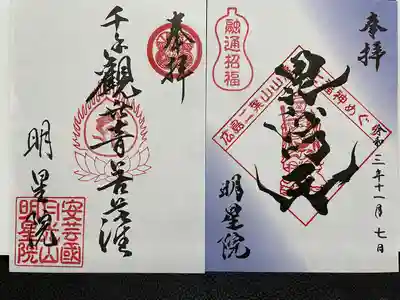 奉拝
令和三年十一月七日
毘沙門天
広島二葉山山
福神めぐ
明星院
融通招福
奉拝
千手觀世音菩薩
明星院
安藝國
明星院